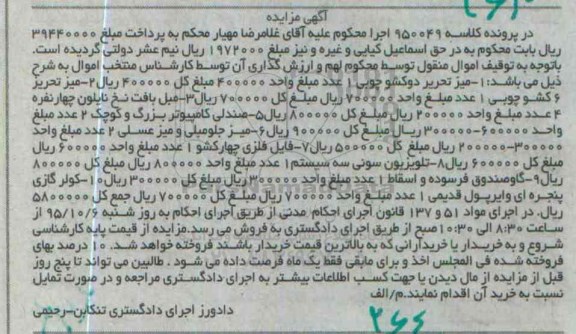 آگهی مزایده
در پرونده کلاسه ۹۵۰۰۴۹ اجرا محکوم علیه آقای غلامرضا مهیار محکم به پرداخت مبلغ ۳۹۴۴۰۰۰۰
ریال بابت محکوم به در حق اسماعیل کیایی و غیره و نیز مبلغ ۱۹۷۲۰۰۰ ریال نیم عشر دولتی گردیده است.
باتوجه به توقیف اموال منقول توسط محکوم لهم و ارزش گذاری آن توسط کارشناس منتخب اموال به شرح
ذیل می باشد: ۱-میز تحریر دوکشو چوبی ۱ عدد مبلغ واحد ۴۰۰۰۰۰ مبلغ کل ۴۰۰۰۰۰ ریال۲-میز تحریر
۶ کشو چوبی ۱ عدد مبلغ واحد ۷۰۰۰۰۰ ریال مبلغ کل ۷۰۰۰۰۰ ریال۳-مبل بافت نخ نایلون چهار نفره
۴ عدد مبلغ واحد ۲۰۰۰۰۰ ریال مبلغ کل ۸۰۰۰۰۰ ریال۵-صندلی کامپیوتر بزرگ و کوچک ۲ عدد مبلغ
واحد ۶۰۰۰۰۰-۳۰۰۰۰۰ ریال مبلغ کل ۹۰۰۰۰۰ ریال۶-میز جلومبلی و میز عسلی ۲ عدد مبلغ واحد
۳۰۰۰۰۰-۲۰۰۰۰۰ ریال مبلغ کل ۵۰۰۰۰۰ ریال۷-فایل فلزی چهارکشو ۱ عدد مبلغ واحد ۶۰۰۰۰۰ ریال
مبلغ کل ۶۰۰۰۰۰ ریال۸-تلویزیون سونی سه سیستم۱ عدد مبلغ واحد ۸۰۰۰۰۰ ریال مبلغ کل ۸۰۰۰۰۰
ریال۹-گاوصندوق فرسوده و اسقاط ۱ عدد مبلغ واحد ۳۰۰۰۰۰ ریال مبلغ کل ۳۰۰۰۰۰ ریال ۱۰-کولر گازی
پنجره ای وایرپول قدیمی ۱ عدد مبلغ واحد ۷۰۰۰۰۰ ریال مبلغ کل ۷۰۰۰۰۰ ریال جمع کل ۵۸۰۰۰۰۰
ریال. در اجرای مواد ۵۱ و ۱۳۷ قانون اجرای احکام مدنی از طریق اجرای احکام به روز شنبه ۹۵/۱۰/۶ از
ساعت ۸:۳۰ الی ۱۰:۳۰صبح از طریق اجرای دادگستری به فروش می رسد.مزایده از قیمت پایه کارشناسی
شروع و به خریدار یا خریدارانی که به بالاترین قیمت خریدار باشند فروخته خواهد شد. ۱۰ درصد بهای
فروخته شده فی المجلس اخذ و برای مابقی فقط یک ماه فرصت داده می شود . طالبین می تواند تا پنج روز
قبل از مزایده از مال دیدن یا جهت کسب اطلاعات بیشتر به اجرای دادگستری مراجعه و در صورت تمایل
نسبت به خرید آن اقدام نمایند.م/الف
دادورز اجرای دادگستری تنکابن-رحیمی
۲۶۶